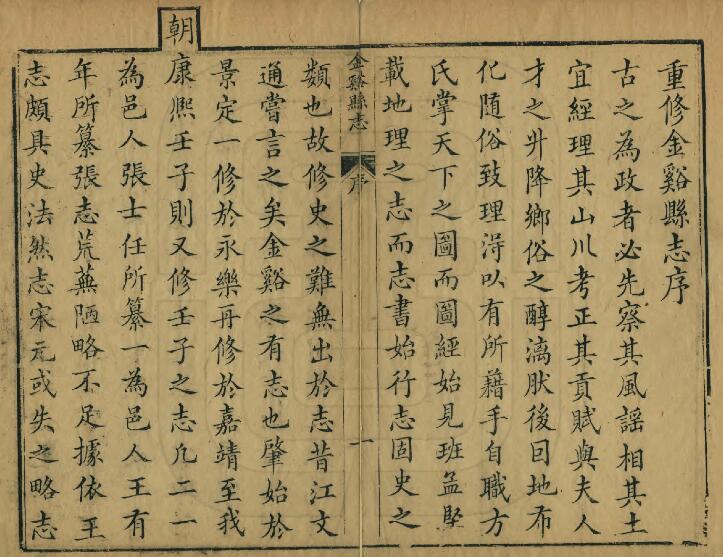 重修金谿縣志序
古之為政者必先察其風謡相其土
宜經理其山川考正其貢賦與夫人
才之升降鄉俗之醇漓肰後因地布
化随俗致理淂以有所藉手自職方
氏掌天下之圖而圖經始見班孟堅
載地理之志而志書始行志固史之
金谿縣志
序
一
類也故修史之難無出於志昔江文
通嘗言之矣金谿之有志也肇始於
景定一修於永樂再修於嘉靖至我
朝康熈壬子則又修壬子之志凡二一
為邑人張士任所纂一為邑人王有
年所纂張志荒蕪陋略不足據依王
志頗具史法然志宋元或失之略志